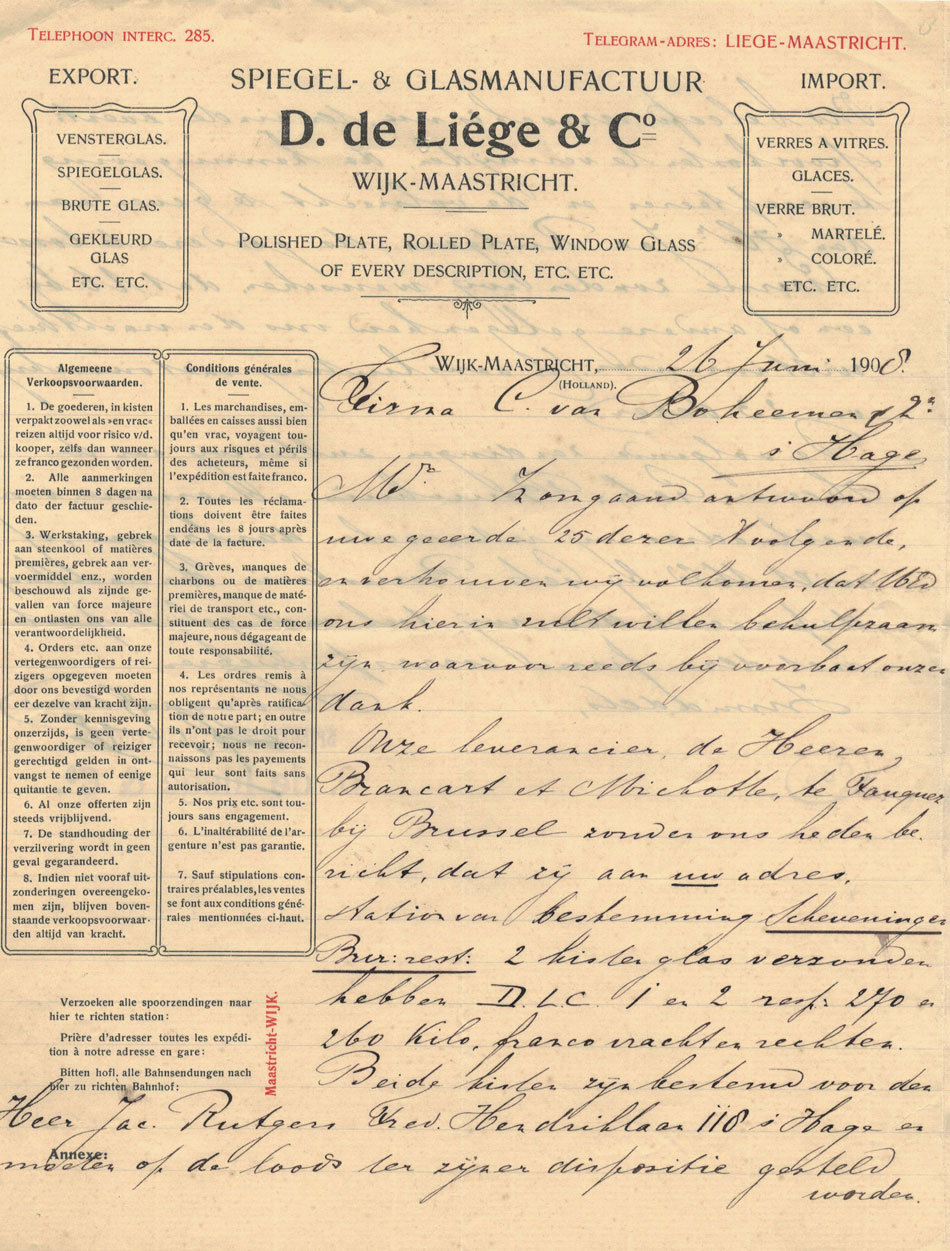 TELEPHOON INTERC. 285.
TELEGRAM-ADRES: LIEGE-MAASTRICHT.
EXPORT.
VENSTERGLAS.
SPIEGELGLAS.
BRUTE GLAS.
GEKLEURD
GLAS
ETC. ETC.
SPIEGEL- & GLASMANUFACTUUR
D. de Liége & Co
WIJK-MAASTRICHT.
POLISHED PLATE, ROLLED PLATE, WINDOW GLASS
OF EVERY DESCRIPTION, ETC. ETC.
IMPORT.
VERRES A VITRES.
GLACES.
VERRE BRUT.
» MARTELÉ.
» COLORÉ.
ETC. ETC.
Algemeene
Verkoopsvoorwaarden.
1. De goederen, in kisten
verpakt zoowel als »en vrac«
reizen altijd voor risico v/d.
kooper, zelfs dan wanneer
ze franco gezonden worden.
2. Alle aanmerkingen
moeten binnen 8 dagen na
dato der factuur geschie-
den.
3. Werkstaking, gebrek
aan steenkool of matières
premières, gebrek aan ver-
voermiddel enz., worden
beschouwd als zijnde ge-
vallen van force majeure
en ontlasten ons van alle
verantwoordelijkheid.
4. Orders etc. aan onze
vertegenwoordigers of rei-
zigers opgegeven moeten
door ons bevestigd worden
eer dezelve van kracht zijn.
5. Zonder kennisgeving
onzerzijds, is geen verte-
genwoordiger of reiziger
gerechtigd gelden in ont-
vangst te nemen of eenige
quitantie te geven.
6. Al onze offerten zijn
steeds vrijblijvend.
7. De standhouding der
verzilvering wordt in geen
geval gegarandeerd.
8. Indien niet vooraf uit-
zonderingen overeengeko-
men zijn, blijven boven-
staande verkoopsvoorwaar-
den altijd van kracht.
Conditions générales
de vente.
1. Les marchandises, em-
ballées en caisses aussi bien
qu'en vrac, voyagent tou-
jours aux risques et périls
des acheteurs, même si
l'expédition est faite franco.
2. Toutes les réclama-
tions doivent être faites
endéans les 8 jours après
date de la facture.
3. Grèves, manques de
charbons ou de matières
premières, manque de maté-
riel de transport etc., con-
stituent des cas de force
majeure, nous dégageant de
toute responsabilité.
4. Les ordres remis à
nos représentants ne nous
obligent qu'après ratifica-
tion de notre part; en outre
ils n'ont pas le droit pour
recevoir; nous ne recon-
naissons pas les payements
qui leur sont faits sans
autorisation.
5. Nos prix etc. sont tou-
jours sans engagement.
6. L'inaltérabilité de l'ar-
genture n'est pas garantie.
7. Sauf stipulations con-
traires préalables, les ventes
se font aux conditions géné-
rales mentionnées ci-haut.
Verzoeken alle spoorzendingen naar
hier te richten station:
Prière d'adresser toutes les expédi-
tion à notre adresse en gare:
Bitten hofl. alle Bahnsendungen nach
hier zu richten Bahnhof:
Maastricht-WIJK.
Annexe:
WIJK-MAASTRICHT, 26 Juni 1908.
(HOLLAND).
Firma C. van Boheemen
s Hage
Mrn Zongaand antwoord op
uwe geeerde 25 dezer volgende,
en vertrouwen wij volkomen, dat UEd
ons hierin zult willen behulpzaam
zijn waarvoor reeds bij voorbaat onzen
dank.
Onze leverancier, de Heeren
Brancart et Michotte, te Fauquez
bij Brussel zonden ons heden be-
richt, dat zij aan uw adres,
station van bestemming Scheveningen
Bur: rest: 2 kisten glas verzonden
hebben D.L.C. 1 en 2 resp: 270 en
260 Kilo, franco vracht en rechten.
Beide kisten zijn bestemd voor den
Heer Jac. Rutgers Fred. Hendriklaan 118 s Hage en
moeten op de loods ter zijner dispositie gesteld
worden.